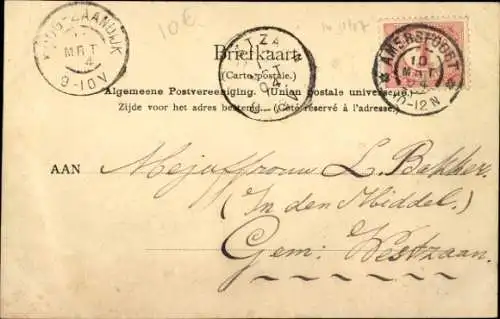 10€
KOOG-ZAANDIJK
MRT
4
9-10V
ZA
04
AMERSFOORT
10
MRT
10-12N
Briefkaart
(Carte postale.)
Algemeene Postvereeniging. (Union postale universelle.)
Zijde voor het adres bestemd. (Côté réservé à l'adresse.)
AAN Mejuffrouw L. Bakker.
(In den Middel.)
Gem: Westzaan.